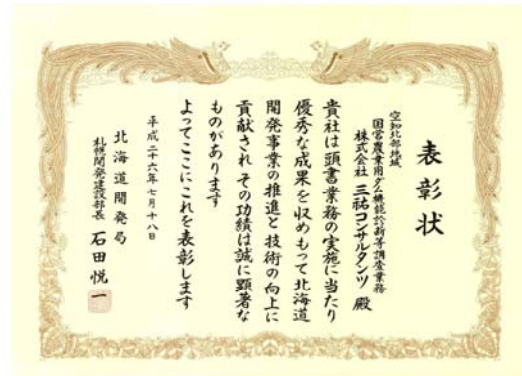 表彰状
空知北部地域
国営農業用ダム機能診断等調査業務
株式会社 三祐コンサルタンツ 殿
貴社は頭書業務の実施に当たり
優秀な成果を収めもって北海道
開発事業の推進と技術の向上に
貢献され その功績は誠に顕著な
ものがあります
よってここにこれを表彰します
平成二十六年七月十八日
北海道開発局
札幌開発建設部長 石田悦一